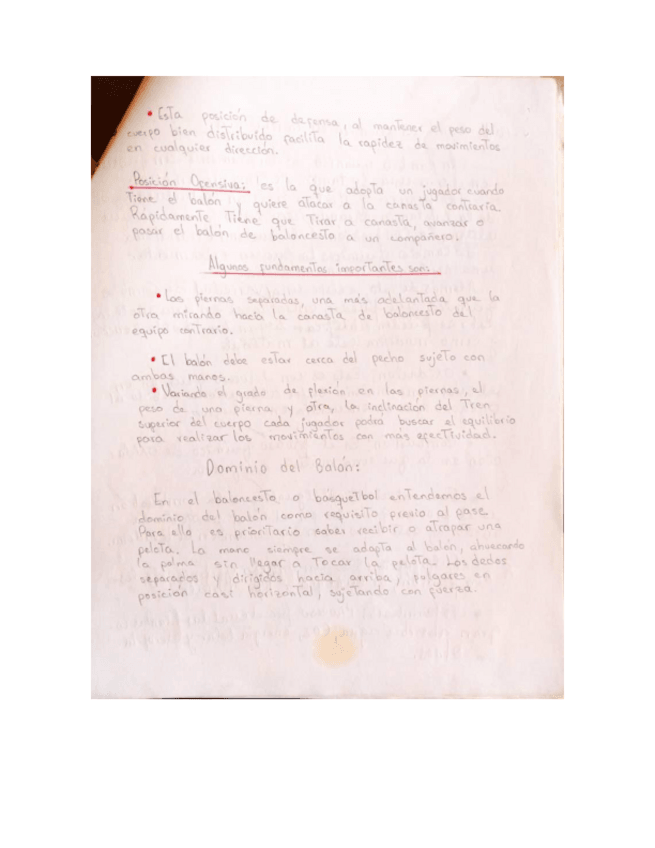 • Esta posición de defensa, al mantener el peso del
cuerpo bien distribuido facilita la rapidez de movimientos
en cualquier dirección.
Posición Ofensiva: es la que adopta un jugador cuando
Tiene el balón y quiere atacar a la canasta contraria.
Rapidamente Tiene que Tirar a canasta, avanzar o
pasar el balón de baloncesto a un compañero.
Algunos fundamentos importantes son:
• Las piernas separadas, una más adelantada que la
otra mirando hacia la canasta de baloncesto del
equipo contrario.
• El balón debe estar cerca del pecho sujeto con
ambas manos.
• Variando el grado de flexión en las piernas, el
peso de una pierna y otra, la inclinación del Tren
superior del cuerpo cada jugador podrá buscar el equilibrio
para realizar los movimientos con más efectividad.
Dominio del Balón:
En el baloncesto o basquetbol entendemos el
dominio del balón como requisito previo al pase.
Para ello es prioritario saber recibir o atrapar una
pelota. La mano siempre se adapta al balón, ahuecando
la palma sin llegar a Tocar la pelota. Los dedos
separados y dirigidos hacia arriba, pulgares en
posición casi horizontal, sujetando con fuerza.